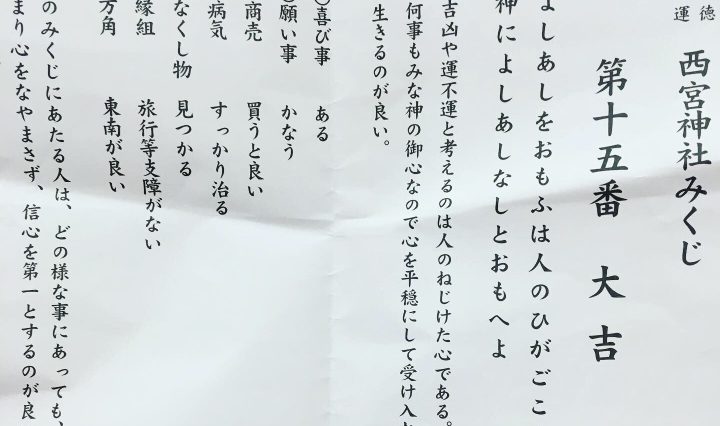 徳
運
西宮神社みくじ
第十五番 大吉
よしあしをおもふは人のひがごこ
神によしあしなしとおもへよ
吉凶や運不運と考えるのは人のねじけた心である。
何事もみな神の御心なので心を平穏にして受け入れ
生きるのが良い。
○喜び事 ある
○願い事 かなう
商売 買うと良い
病気 すっかり治る
なくし物 見つかる
縁組 旅行等支障がない
方角 東南が良い
のみくじにあたる人は、どの様な事にあっても、
まり心をなやまさず、信心を第一とするのが良